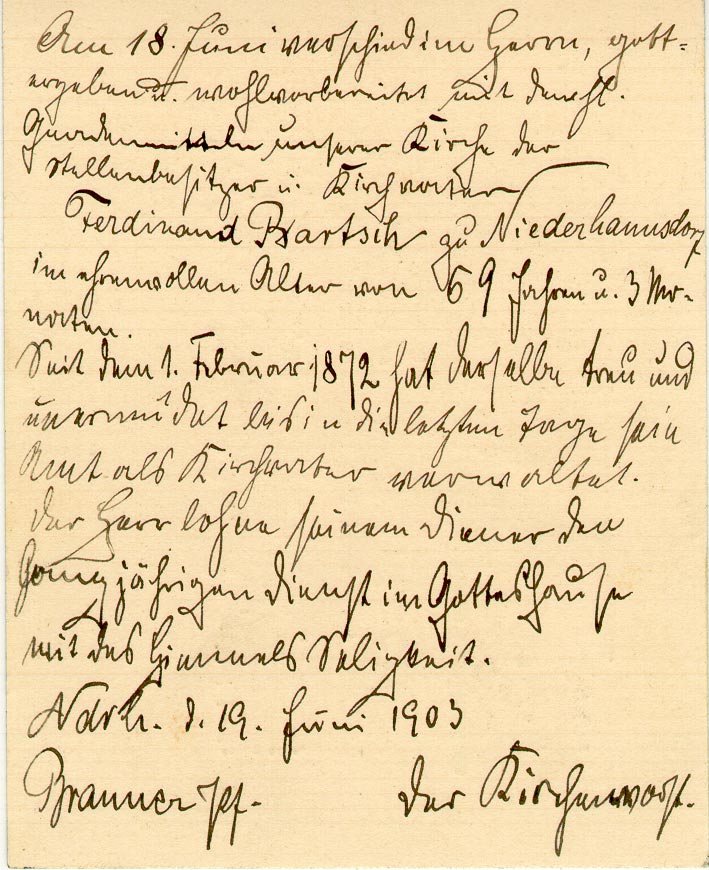 Am 18. Juni verschied im Herrn, gott-
ergeben u. wohlvorbereitet mit den hl.
Gnadenmitteln unserer Kirche der
Stellenbesitzer u. Kirchvater
Ferdinand Bartsch zu Niederhannsdorf
im ehrenvollen Alter von 69 Jahren u. 3 Mo-
naten.
Seit dem 1. Februar 1872 hat derselbe treu und
unermüdet bis in die letzten Tage sein
Amt als Kirchvater verwaltet.
Der Herr lohne seinem Diener den
jährigen Dienst im Gotteshause
mit des Himmels Seligkeit.
Ndrh. d. 19. Juni 1903
Pf. Der Kirchenvorst.